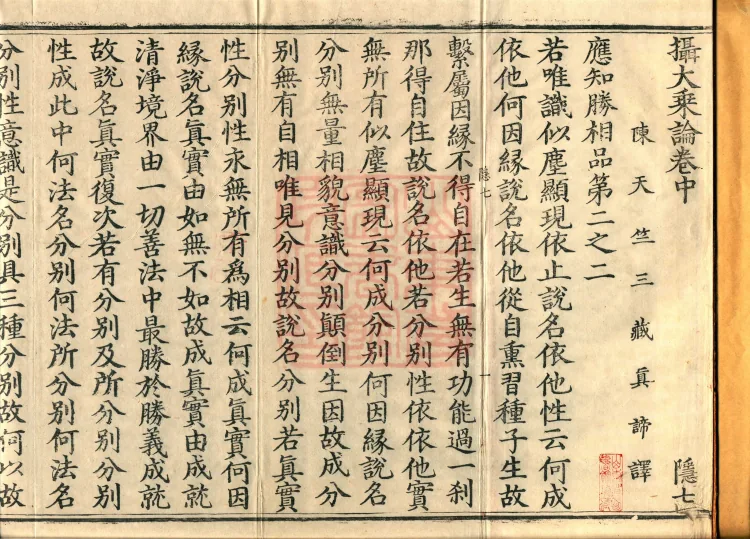 攝大乘論卷中 隱七
陳天竺三藏眞諦譯
應知勝相品第二之二
若唯識似塵顯現依止說名依他性云何成
依他何因緣說名依他從自熏習種子生故
隱七 一
繫屬因緣不得自在若生無有功能過一刹
那得自住故說名依他若分別性依依他實
無所有似塵顯現云何成分別何因緣說名
分別無量相貌意識分別顚倒生因故成分
別無有自相唯見分別故說名分別若眞實
性分別性永無所有爲相云何成眞實何因
緣說名眞實由如無不如故成眞實由成就
清淨境界由一切善法中最勝於勝義成就
故說名眞實復次若有分別及所分別分別
性成此中何法名分別何法所分別何法名
分別性意識是分別具三種分別故何以故